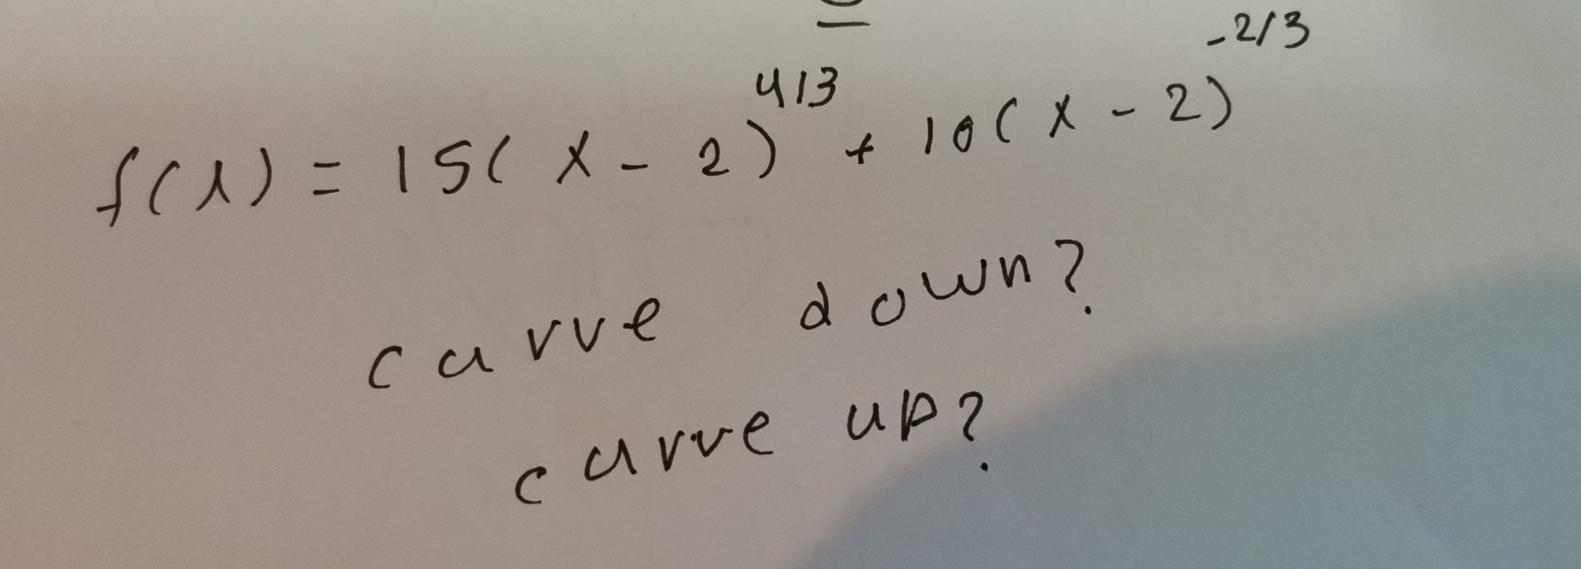 f(x) = 15(x - 2)^4/3 + 10(x - 2)^-2/3
curve down?
curve up?